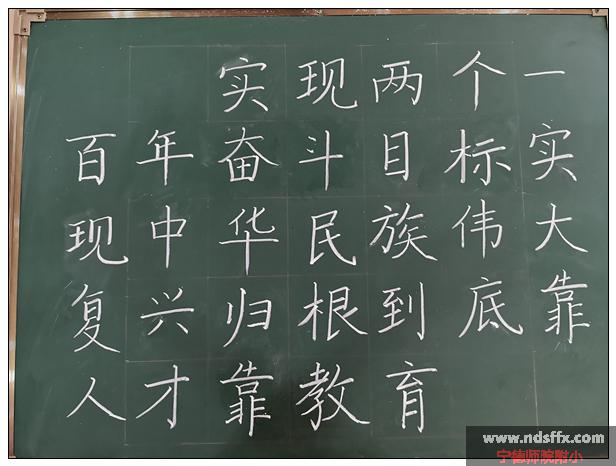 实现两个一
百年奋斗目标实
现中华民族伟大
复兴归根到底靠
人才靠教育
www.ndsffx.com
宁德师院附小